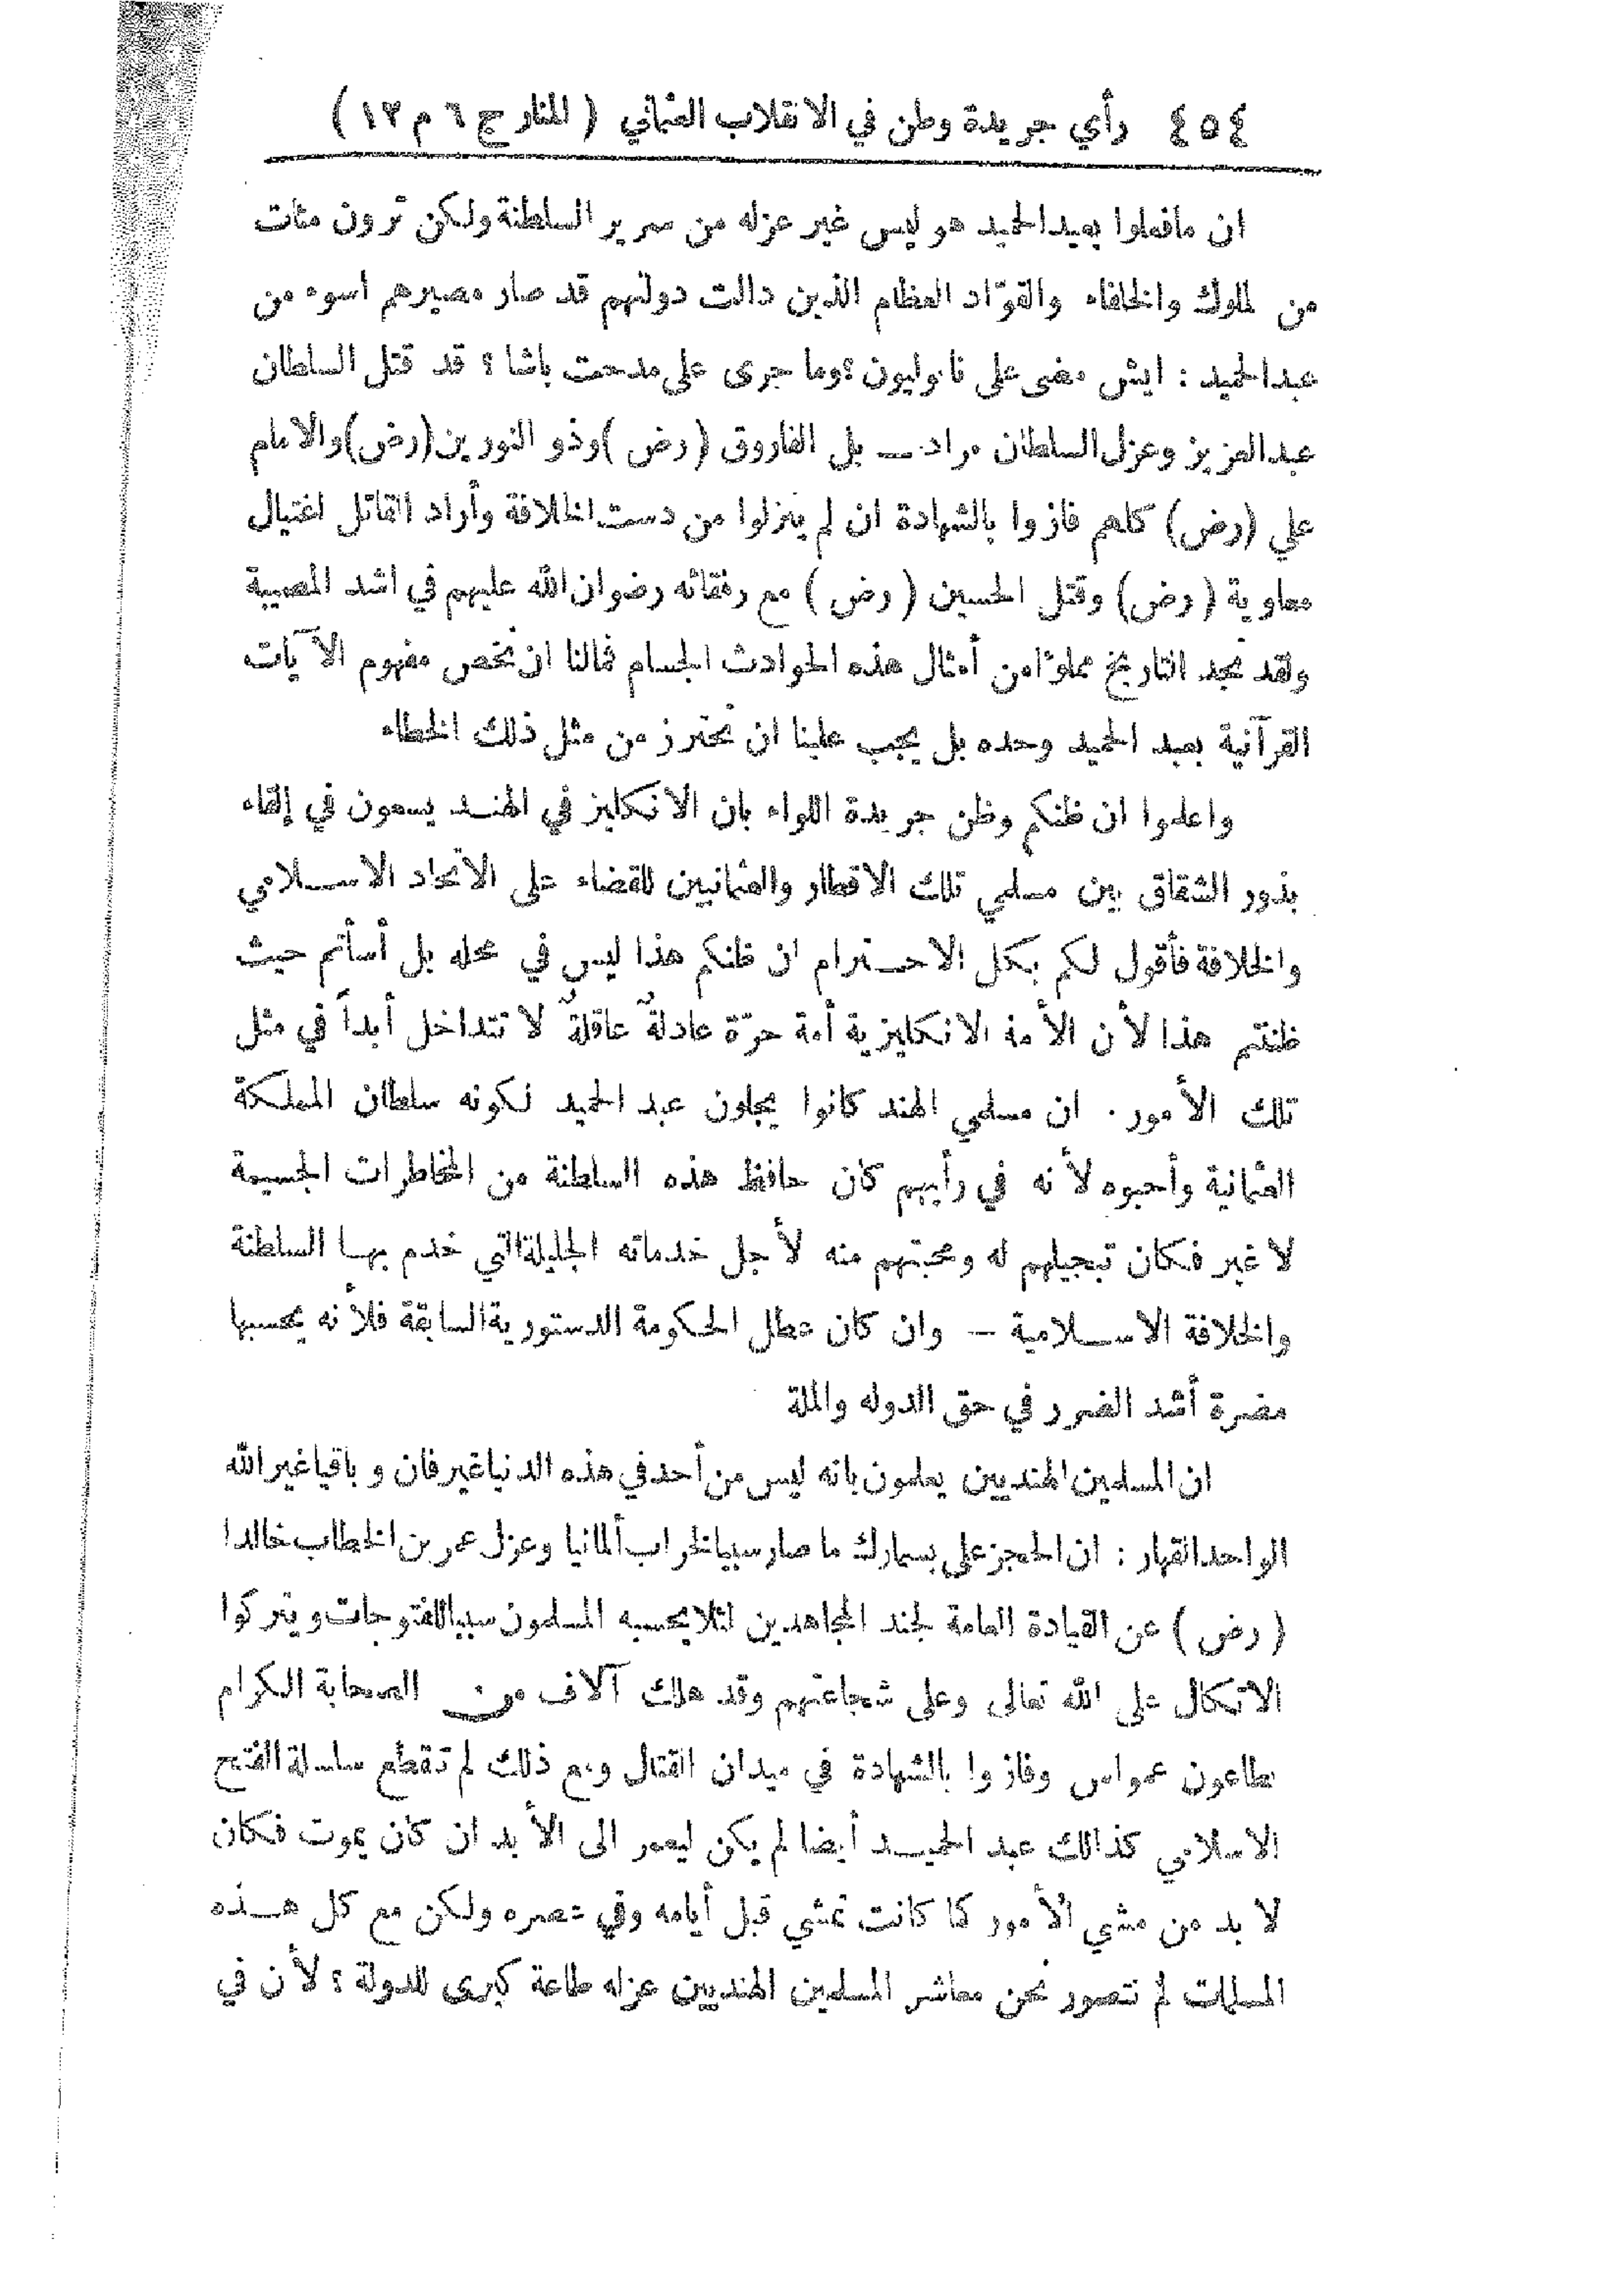 ٤٥٤ رأي جريدة وطن في الانقلاب العثماني ( المنار ج ٦ م ١٢ )
ان مافعلوا بعبدالحميد هو ليس غير عزله من سرير السلطنة ولكن ترون مئات
من لملوك والخلفاء والقوّاد العظام الذين دالت دولتهم قد صار مصيرهم اسوه من
عبدالحميد : ايش مضى على نابوليون ؟وما جرى على مدحت باشا ؟ قد قتل السلطان
عبدالعزيز وعزل السلطان مراد — بل الفاروق ( رض )وذو النورين(رض)والامام
علي (رض) كلهم فازوا بالشهادة ان لم ينزلوا من دست الخلافة وأراد القاتل اغتيال
معاوية (رض) وقتل الحسين ( رض ) مع رفقائه رضوان الله عليهم في اشد المصيبة
ولقد نجد التاريخ مملوءًا من أمثال هذه الحوادث الجسام فمالنا ان نخص مفهوم الآيات
القرآنية بعبد الحميد وحده بل يجب علينا ان نحترز من مثل ذلك الخطاء
واعلموا ان ظنكم وظن جريدة اللواء بان الانكليز في الهند يسعون في إلقاء
بذور الشقاق بين مسلمي تلك الاقطار والعثمانيين للقضاء على الاتحاد الاسلامي
والخلافة فأقول لكم بكل الاحترام ان ظنكم هذا ليس في محله بل أسأتم حيث
ظننتم هذا لأن الأمة الانكليزية أمة حرّة عادلةٌ عاقلةٌ لا تتداخل أبداً في مثل
تلك الأمور . ان مسلمي الهند كانوا يجلون عبد الحميد لكونه سلطان المملكة
العثمانية وأحبوه لأنه في رأيهم كان حافظ هذه السلطنة من المخاطرات الجسيمة
لا غير فكان تبجيلهم له ومحبتهم منه لأجل خدماته الجليلة التي خدم بها السلطنة
والخلافة الاسلامية — وان كان عطل الحكومة الدستورية السابقة فلأنه يحسبها
مضرة أشد الضرر في حق الدوله والملة
ان المسلمين الهنديين يعلمون بانه ليس من أحد في هذه الدنيا غير فان وباقيا غير الله
الواحد القهار : ان الحجز على بسمارك ما صار سببا لخراب ألمانيا وعزل عمر بن الخطاب خالدا
( رض ) عن القيادة العامة لجند المجاهدين لئلا يحسبه المسلمون سببا للفتوحات ويتركوا
الاتكال على الله تعالى وعلى شجاعتهم وقد هلك آلاف من الصحابة الكرام
بطاعون عمواس وفازوا بالشهادة في ميدان القتال ومع ذلك لم تقطع سلسلة الفتح
الاسلامي كذالك عبد الحميد أيضا لم يكن ليعمر الى الأبد ان كان يموت فكان
لا بد من مشي الأمور كما كانت تمشي قبل أيامه وفي عصره ولكن مع كل هذه
المسلمات لم نتصور نحن معاشر المسلمين الهنديين عزله طاعة كبرى للدولة ؟ لأن في